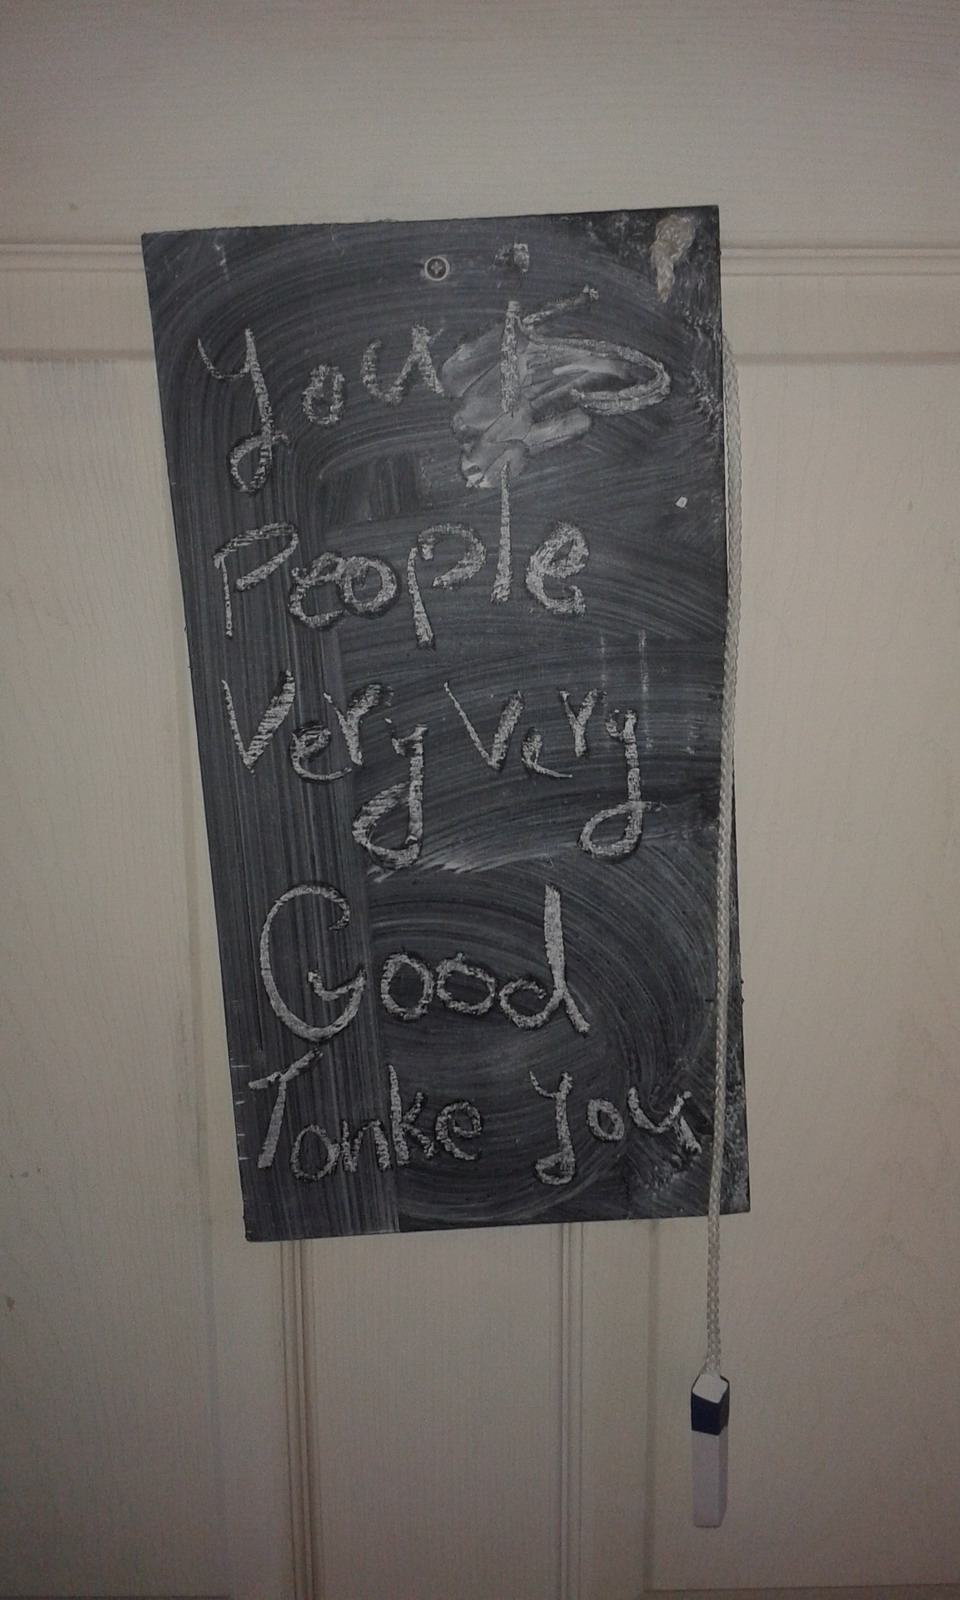 You
People
Very Very
Good
Tanke You